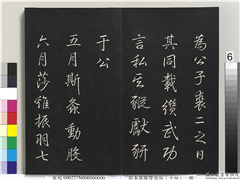 為公子裘二之日
其同載纘武功
言私其豵獻豜
于公
五月斯螽動股
六月莎雞振羽七
6